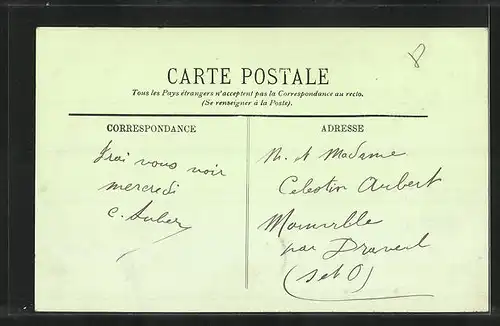 8
CARTE POSTALE
Tous les Pays étrangers n'acceptent pas la Correspondance au recto.
(Se renseigner à la Poste).
CORRESPONDANCE
ADRESSE
J'irai vous voir
mercredi
C. Auber
M. et Madame
Celestin Aubert
Mainville
par Draveil
(S et O)